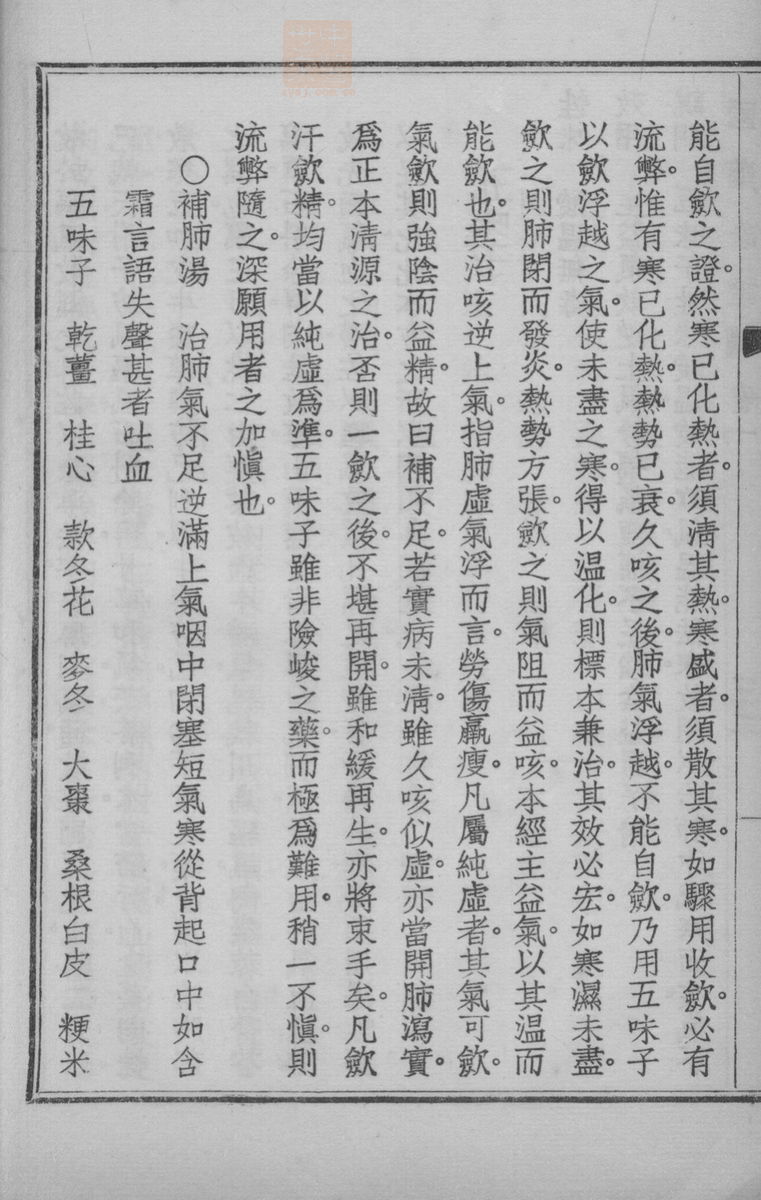 能自歛之證。然寒已化熱者。須淸其熱。寒盛者。須散其寒。如驟用收歛。必有
流弊。惟有寒已化熱。熱勢已衰。久咳之後。肺氣浮越。不能自歛。乃用五味子
以歛浮越之氣。使未盡之寒。得以温化。則標本兼治。其效必宏。如寒濕未盡。
歛之則肺閉而發炎。熱勢方張。歛之則氣阻而益咳。本經主益氣。以其温而
能歛也。其治咳逆上氣。指肺虛氣浮而言。勞傷羸瘦。凡屬純虛者。其氣可歛。
氣歛則強陰而益精。故曰補不足。若實病未淸。雖久咳似虛。亦當開肺瀉實。
爲正本淸源之治。否則一歛之後。不堪再開。雖和緩再生。亦將束手矣。凡歛
汗歛精。均當以純虛爲準。五味子雖非險峻之藥。而極爲難用。稍一不愼。則
流弊隨之。深願用者之加愼也。
〇補肺湯　治肺氣不足逆滿上氣咽中閉塞短氣寒從背起口中如含
霜言語失聲甚者吐血
五味子　乾薑　桂心　款冬花　麥冬　大棗　桑根白皮　粳米